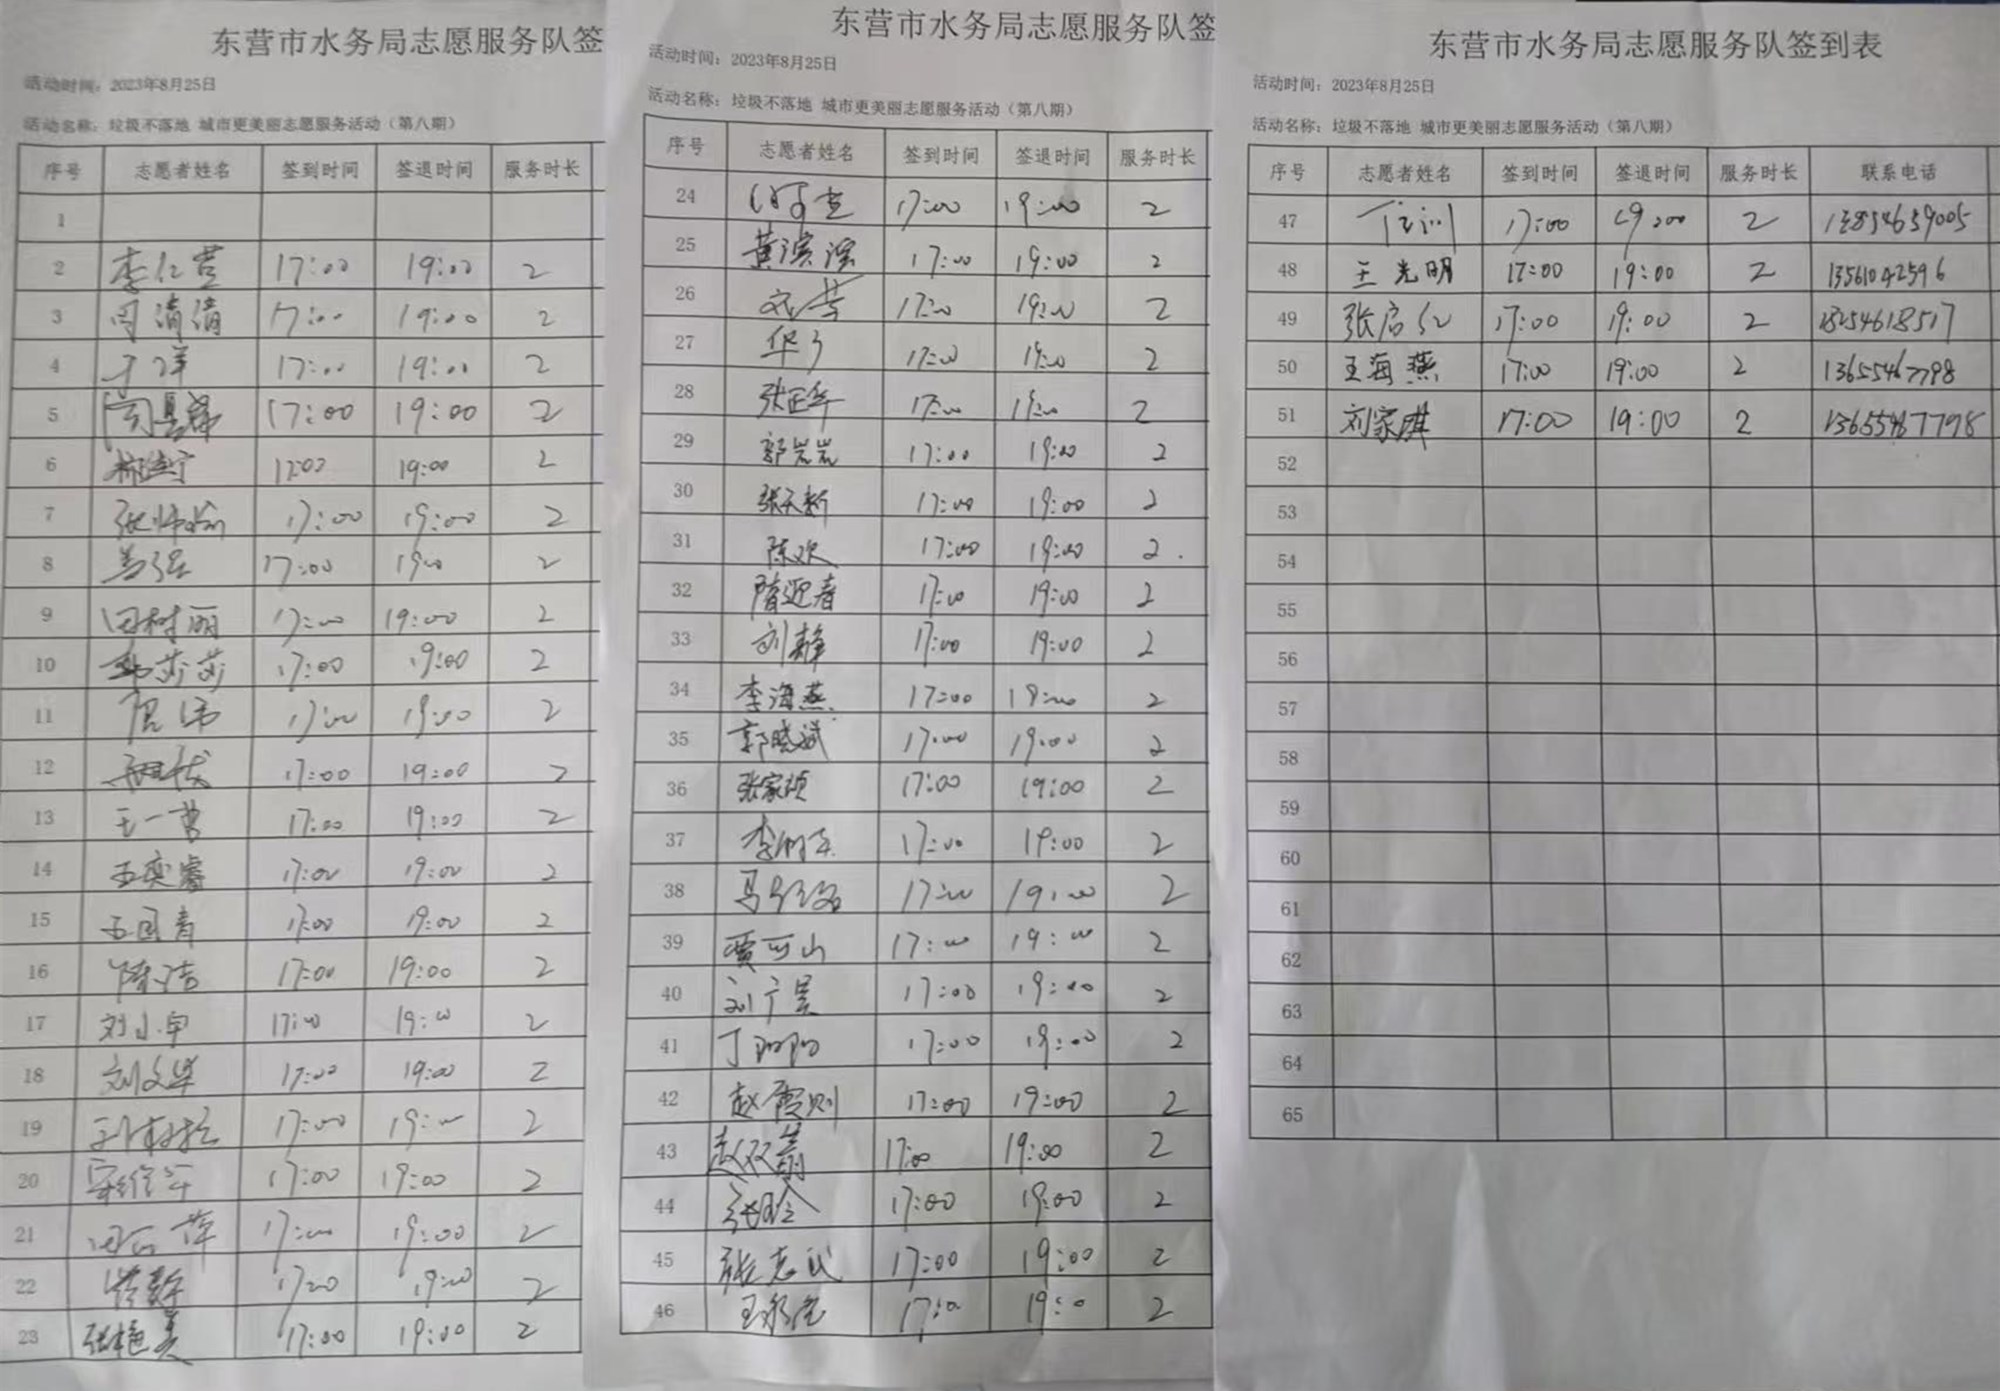 东营市水务局志愿服务队签
活动时间：2023年8月25日
活动名称：垃圾不落地 城市更美丽志愿服务活动（第八期）
序号 志愿者姓名 签到时间 签退时间 服务时长
1
2 李仁营 17:00 19:00 2
3 周清倩 17:00 19:00 2
4 于洋 17:00 19:00 2
5 17:00 19:00 2
6 17:00 19:00 2
7 17:00 19:00 2
8 17:00 19:00 2
9 田树丽 17:00 19:00 2
10 莎莎 17:00 19:00 2
11 17:00 19:00 2
12 17:00 19:00 2
13 17:00 19:00 2
14 王奕睿 17:00 19:00 2
15 王国青 17:00 19:00 2
16 陈洁 17:00 19:00 2
17 刘小申 17:00 19:00 2
18 刘文华 17:00 19:00 2
19 17:00 19:00 2
20 17:00 19:00 2
21 17:00 19:00 2
22 17:00 19:00 2
23 张艳美 17:00 19:00 2
东营市水务局志愿服务队签
活动时间：2023年8月25日
活动名称：垃圾不落地 城市更美丽志愿服务活动（第八期）
序号 志愿者姓名 签到时间 签退时间 服务时长
24 17:00 19:00 2
25 黄滨滨 17:00 19:00 2
26 17:00 19:00 2
27 17:00 19:00 2
28 张正华 17:00 19:00 2
29 郭岩岩 17:00 19:00 2
30 张天新 17:00 19:00 2
31 陈欢 17:00 19:00 2
32 隋迎春 17:00 19:00 2
33 刘静 17:00 19:00 2
34 李海燕 17:00 19:00 2
35 郭晓斌 17:00 19:00 2
36 张家硕 17:00 19:00 2
37 17:00 19:00 2
38 17:00 19:00 2
39 17:00 19:00 2
40 刘广昊 17:00 19:00 2
41 丁阳阳 17:00 19:00 2
42 赵霞 17:00 19:00 2
43 17:00 19:00 2
44 17:00 19:00 2
45 张志民 17:00 19:00 2
46 17:00 19:00 2
东营市水务局志愿服务队签到表
活动时间：2023年8月25日
活动名称：垃圾不落地 城市更美丽志愿服务活动（第八期）
序号 志愿者姓名 签到时间 签退时间 服务时长 联系电话
47 17:00 19:00 2 13854659005
48 王光明 17:00 19:00 2 13561042596
49 张启 17:00 19:00 2 18254618517
50 王海燕 17:00 19:00 2 13655467798
51 刘家琪 17:00 19:00 2 13655467798
52
53
54
55
56
57
58
59
60
61
62
63
64
65